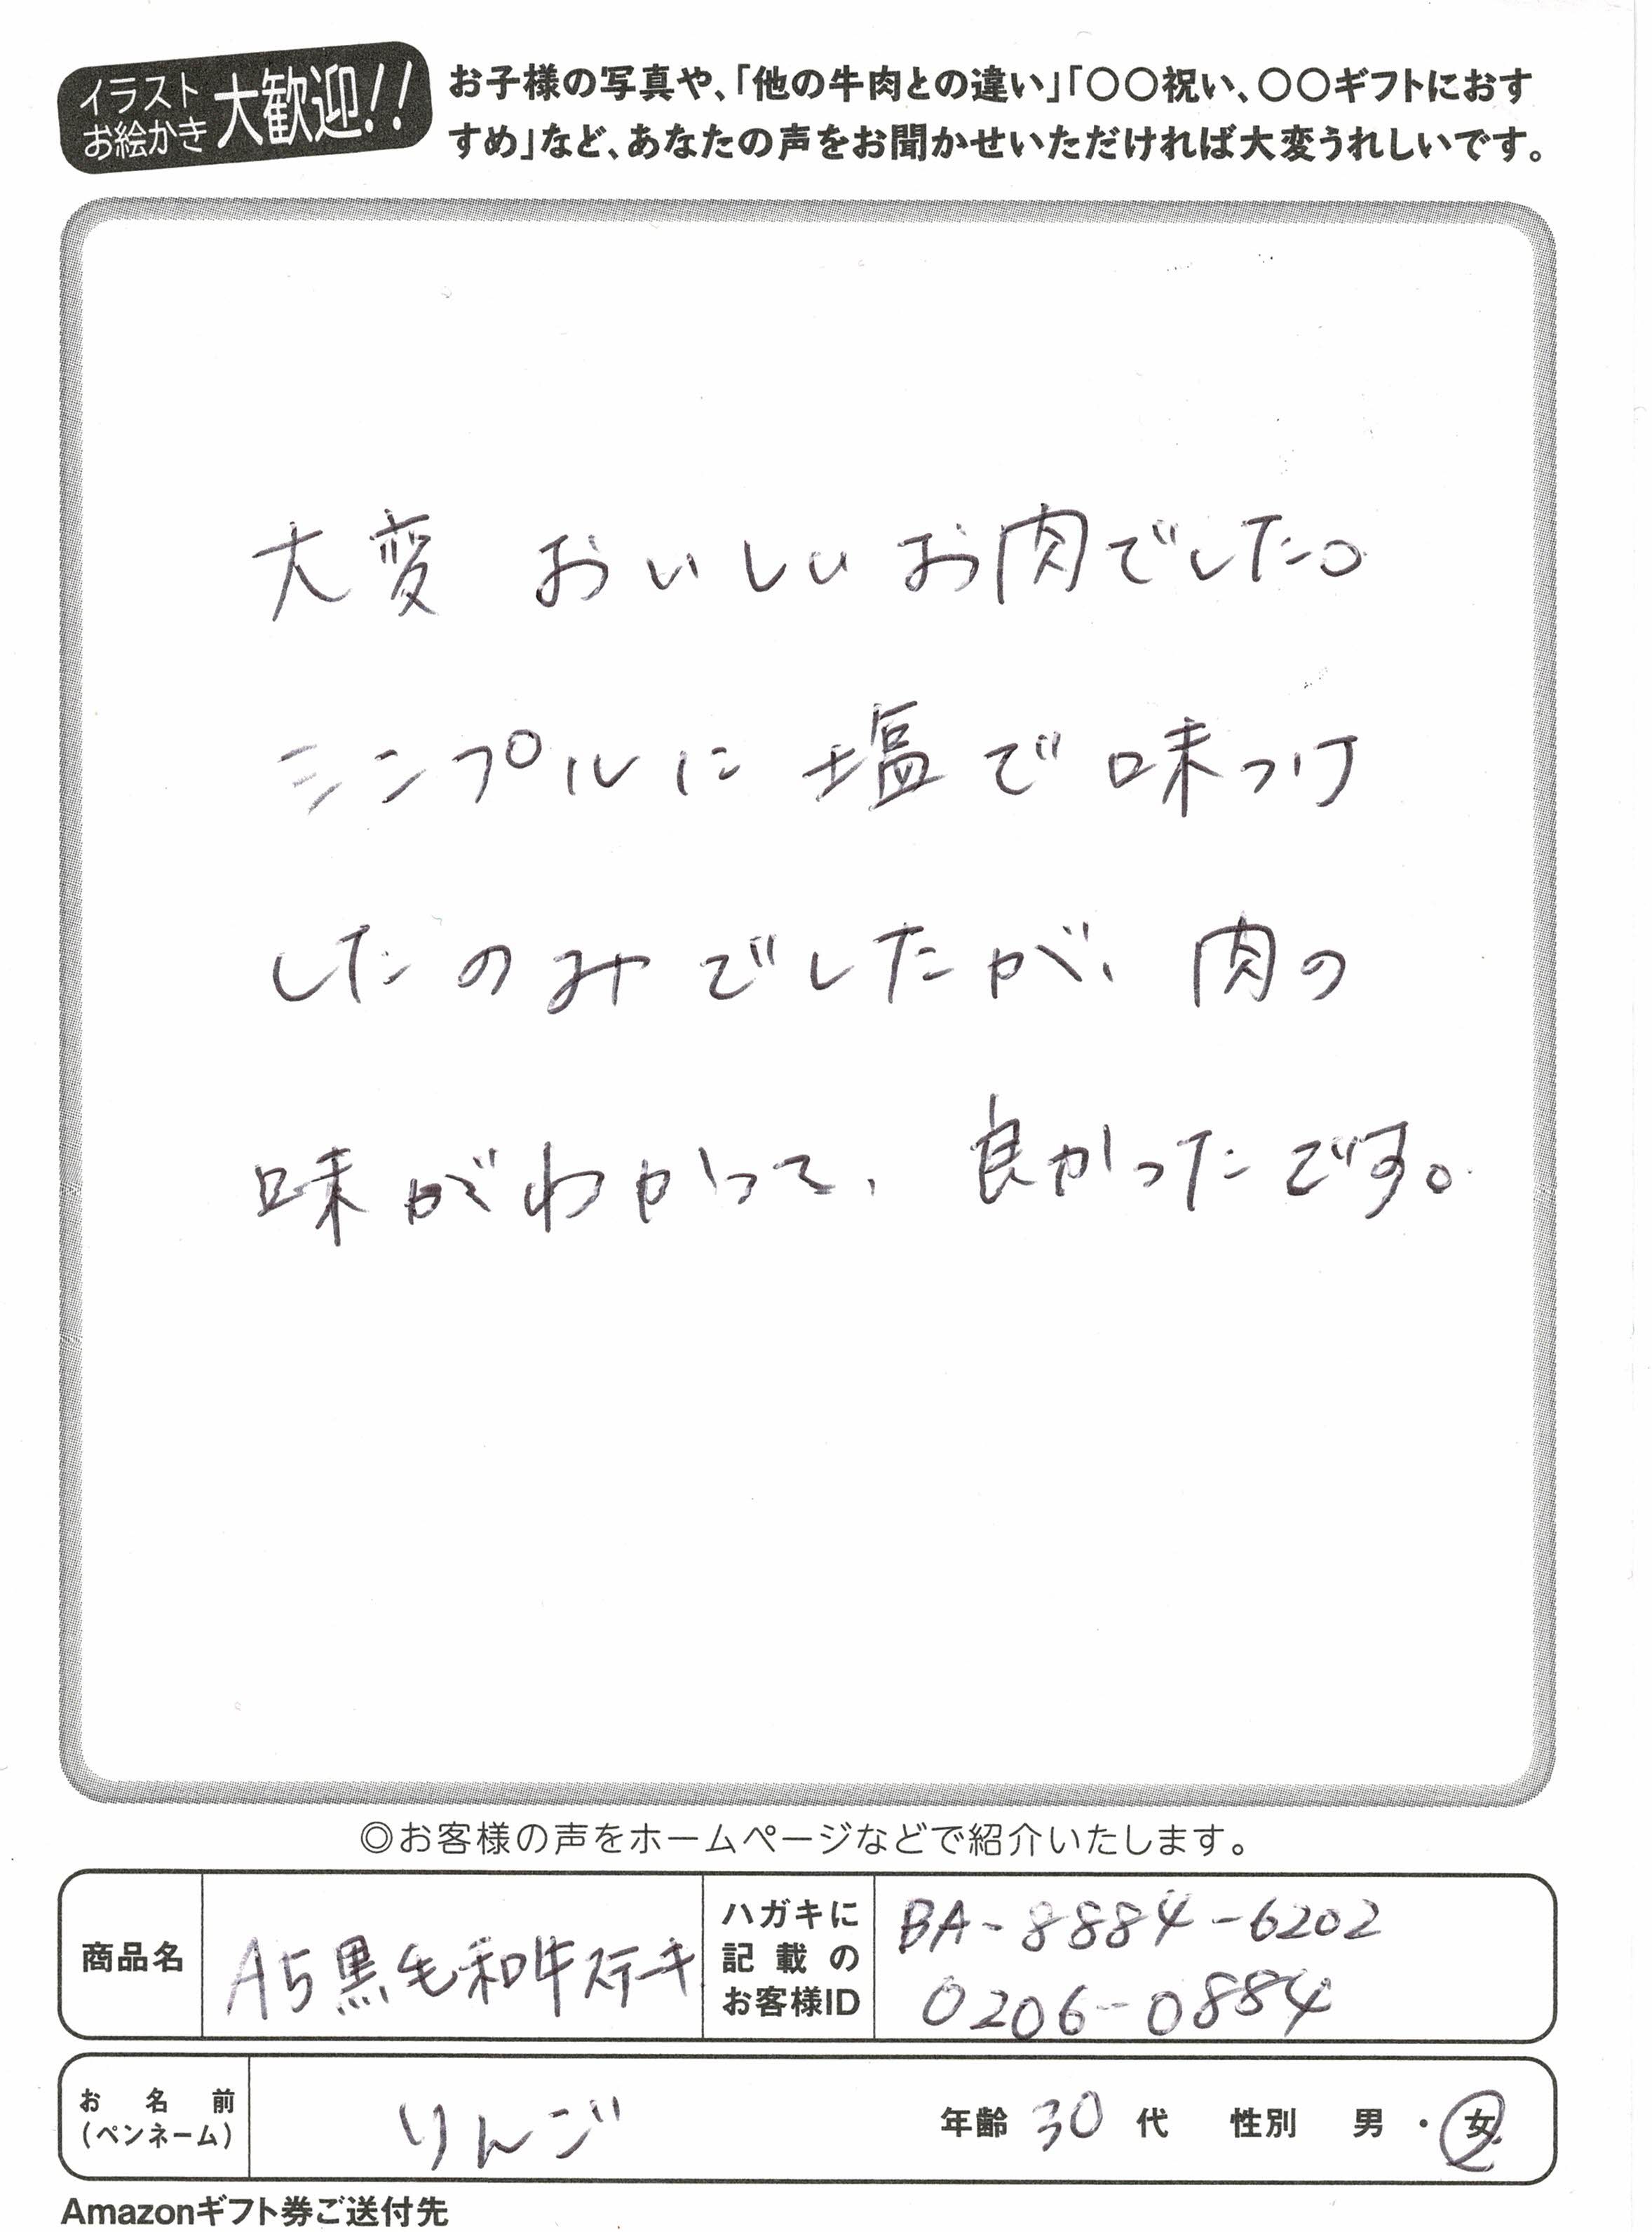 イラスト
お絵かき
大歓迎!!
お子様の写真や、「他の牛肉との違い」「〇〇祝い、〇〇ギフトにおす
すめ」など、あなたの声をお聞かせいただければ大変うれしいです。
大変 おいしい お肉でした。
シンプルに 塩で 味つけ
したのみでしたが、肉の
味がわかって、良かったです。
◎お客様の声をホームページなどで紹介いたします。
商品名
A5黒毛和牛ステーキ
ハガキに
記載の
お客様ID
BA-8884-6202
0206-0884
お名前
(ペンネーム)
りんご
年齢 30 代 性別 男・女
Amazonギフト券ご送付先